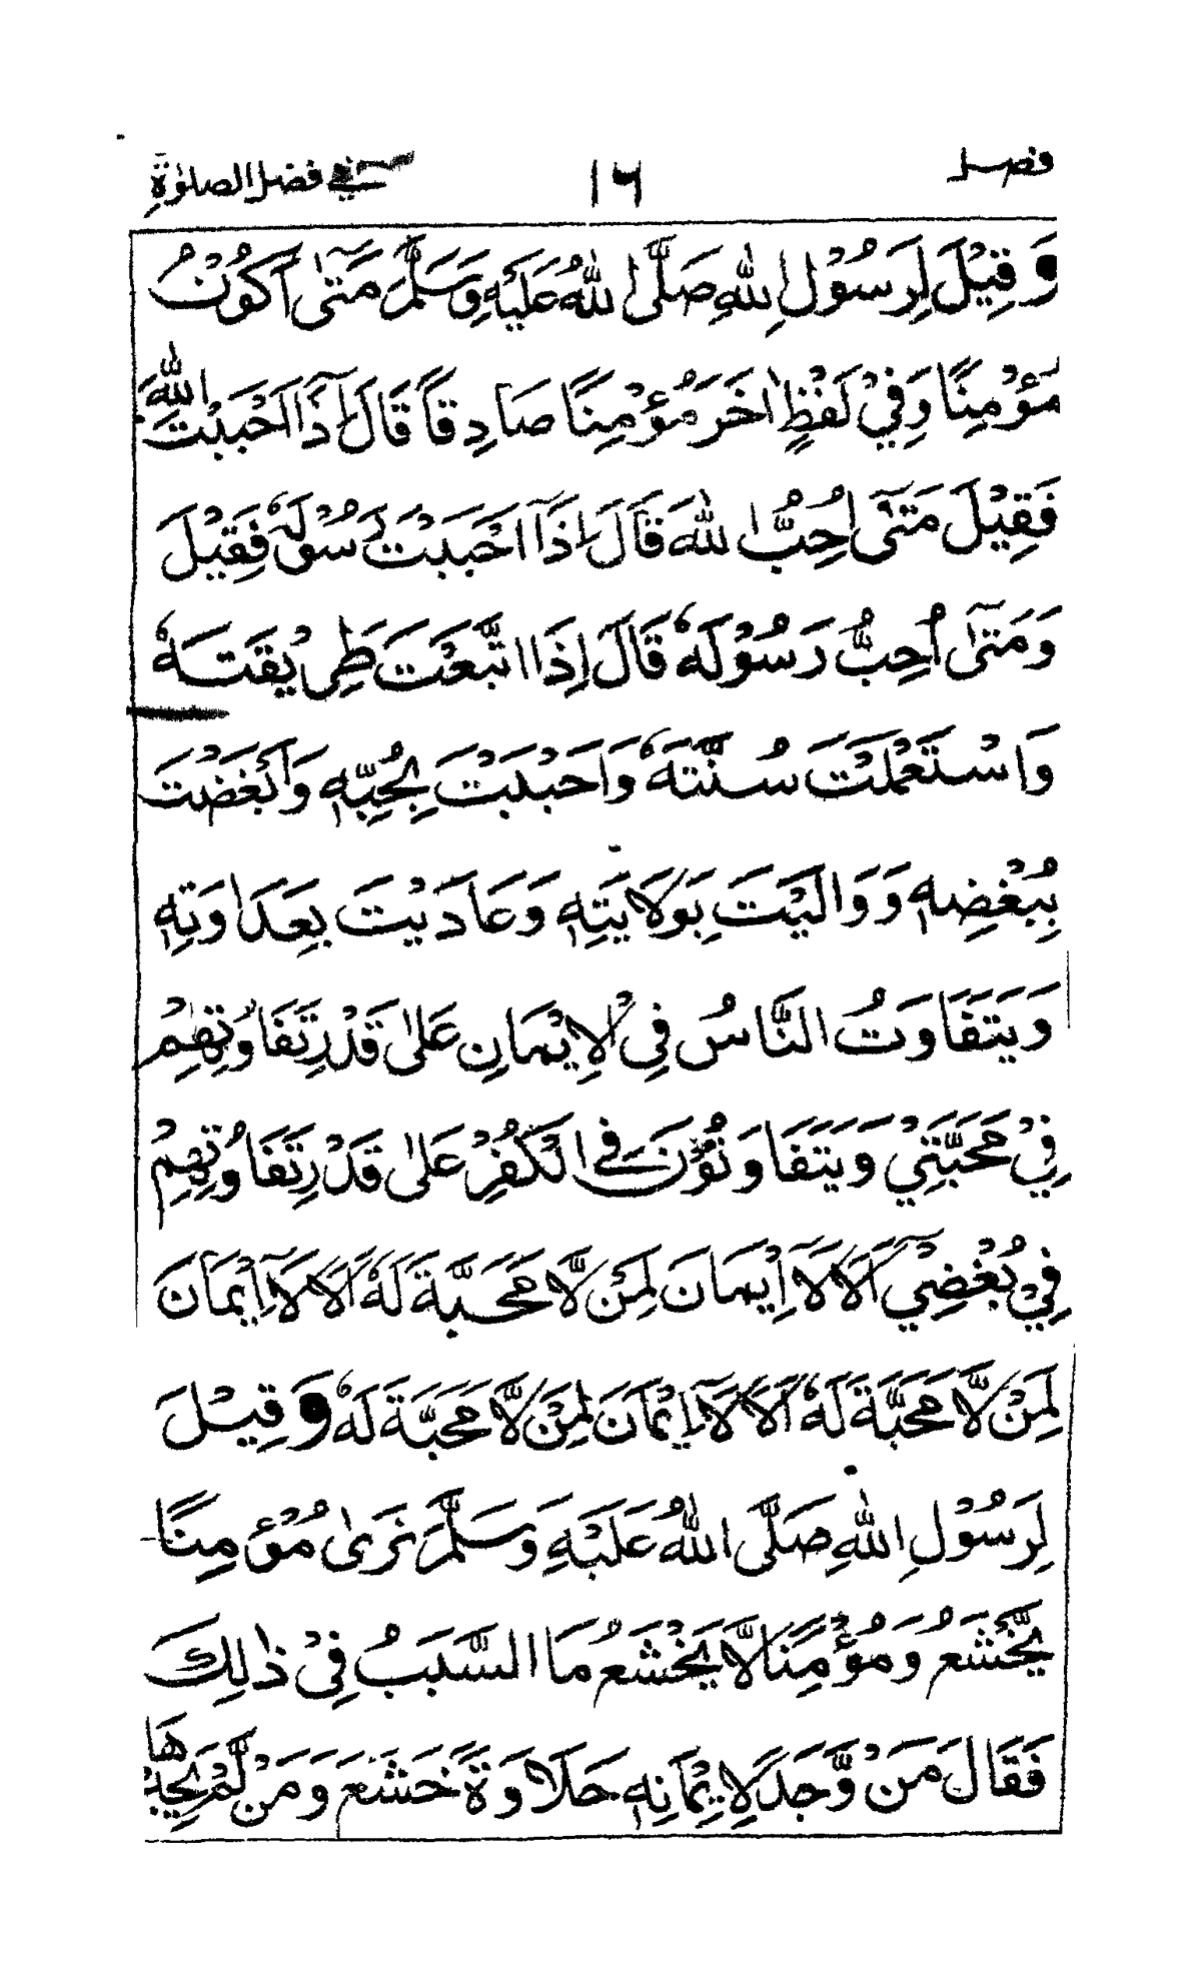 فصل ١٦ في فضل الصلوٰة
وَقِيْلَ لِرَسُوْلِ اللهِ صَلَّى اللهُ عَلَيْهِ وَسَلَّمَ مَتٰى اَكُوْنُ
مُؤْمِنًا وَفِيْ لَفْظٍ اٰخَرَ مُؤْمِنًا صَادِقًا قَالَ اِذَآ اَحْبَبْتَ اللهَ
فَقِيْلَ مَتٰٓى اُحِبُّ اللهَ قَالَ اِذَآ اَحْبَبْتَ رَسُوْلَهٗ فَقِيْلَ
وَمَتٰٓى اُحِبُّ رَسُوْلَهٗ قَالَ اِذَا اتَّبَعْتَ طَرِيْقَتَهٗ
وَاسْتَعْمَلْتَ سُنَّتَهٗ وَاَحْبَبْتَ بِحُبِّهٖ وَاَبْغَضْتَ
بِبُغْضِهٖ وَوَالَيْتَ بِوَلَايَتِهٖ وَعَادَيْتَ بِعَدَاوَتِهٖ
وَيَتَفَاوَتُ النَّاسُ فِى الْاِيْمَانِ عَلٰى قَدْرِ تَفَاوُتِهِمْ
فِيْ مَحَبَّتِيْ وَيَتَفَاوَتُوْنَ فِى الْكُفْرِ عَلٰى قَدْرِ تَفَاوُتِهِمْ
فِيْ بُغْضِيْٓ اَلَا لَآ اِيْمَانَ لِمَنْ لَّا مَحَبَّةَ لَهٗ اَلَا لَآ اِيْمَانَ
لِمَنْ لَّا مَحَبَّةَ لَهٗ اَلَا لَآ اِيْمَانَ لِمَنْ لَّا مَحَبَّةَ لَهٗ وَقِيْلَ
لِرَسُوْلِ اللهِ صَلَّى اللهُ عَلَيْهِ وَسَلَّمَ نَرٰى مُؤْمِنًا
يَّخْشَعُ وَمُؤْمِنًا لَّا يَخْشَعُ مَا السَّبَبُ فِيْ ذٰلِكَ
فَقَالَ مَنْ وَّجَدَ لِاِيْمَانِهٖ حَلَاوَةً خَشَعَ وَمَنْ لَّمْ يَجِدْهَا